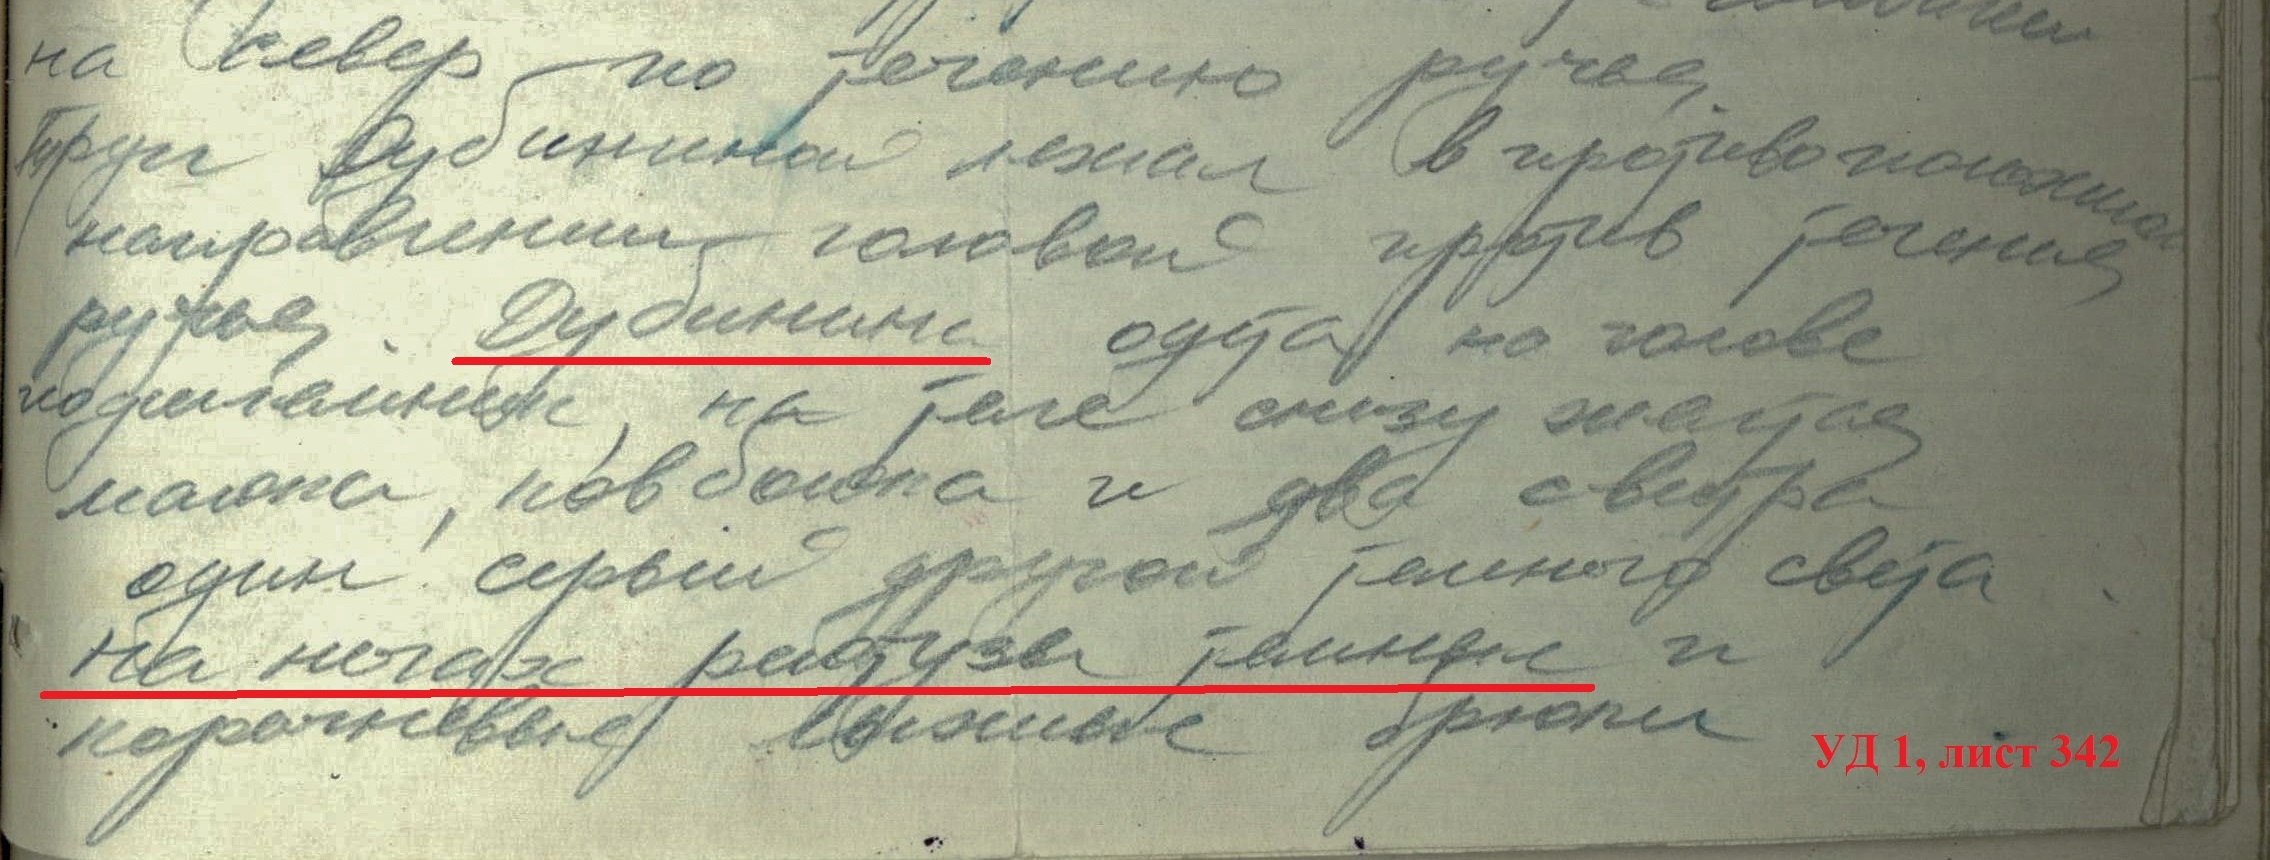 на север по течению ручья.
Труп Дубининой лежал в противоположном
направлении головой против течения
ручья. Дубинина одета на голове
подшлемник, на теле снизу желтая
майка, ковбойка и два свитра
один серый другой темного света
На ногах рейтузы темные и
коричневые лыжные брюки
УД 1, лист 342